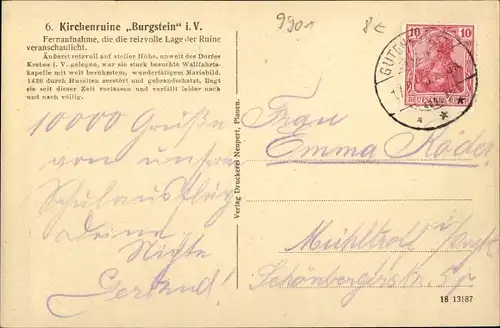 9901
8€
6. Kirchenruine „Burgstein" i. V.
Fernaufnahme, die die reizvolle Lage der Ruine
veranschaulicht.
Äußerst reizvoll auf steiler Höhe, unweit des Dorfes
Krebes i. V. gelegen, war sie stark besuchte Wallfahrts-
kapelle mit weit berühmtem, wundertätigem Mariabild.
1430 durch Hussiten zerstört und gebrandschatzt, liegt
sie seit dieser Zeit verlassen und verfällt leider nach
und nach völlig.
10 10
DEUTSCHES REICH
10000 Grüße
von unserm
Schulausflug
Deine
Nichte
Gertrud!
Verlag Druckerei Neupert, Plauen.
Frau
Emma Röder
Mühltroff i/Vogtl.
Schönbergerstr.
18 13187